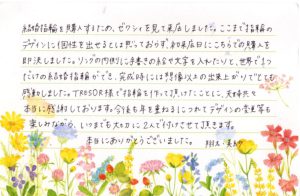 結婚指輪を購入するため、ゼクシィを見て来店しました。ここまで指輪の
デザインに個性を出せるとは思っておらず、初来店日にこちらでの購入を
即決しました。リングの内側に手書きの絵や文字を入れたりと、世界で1つ
だけの結婚指輪ができ、完成時には想像以上の出来上がりでとても
感動しました。TRESOR様で指輪を作って頂けたことに、夫婦共々
本当に感謝しております。今後も年を重ねるにつれてデザインの変身等も
楽しみながら、いつまでも大切に2人で付けさせて頂きます。
本当にありがとうございました。